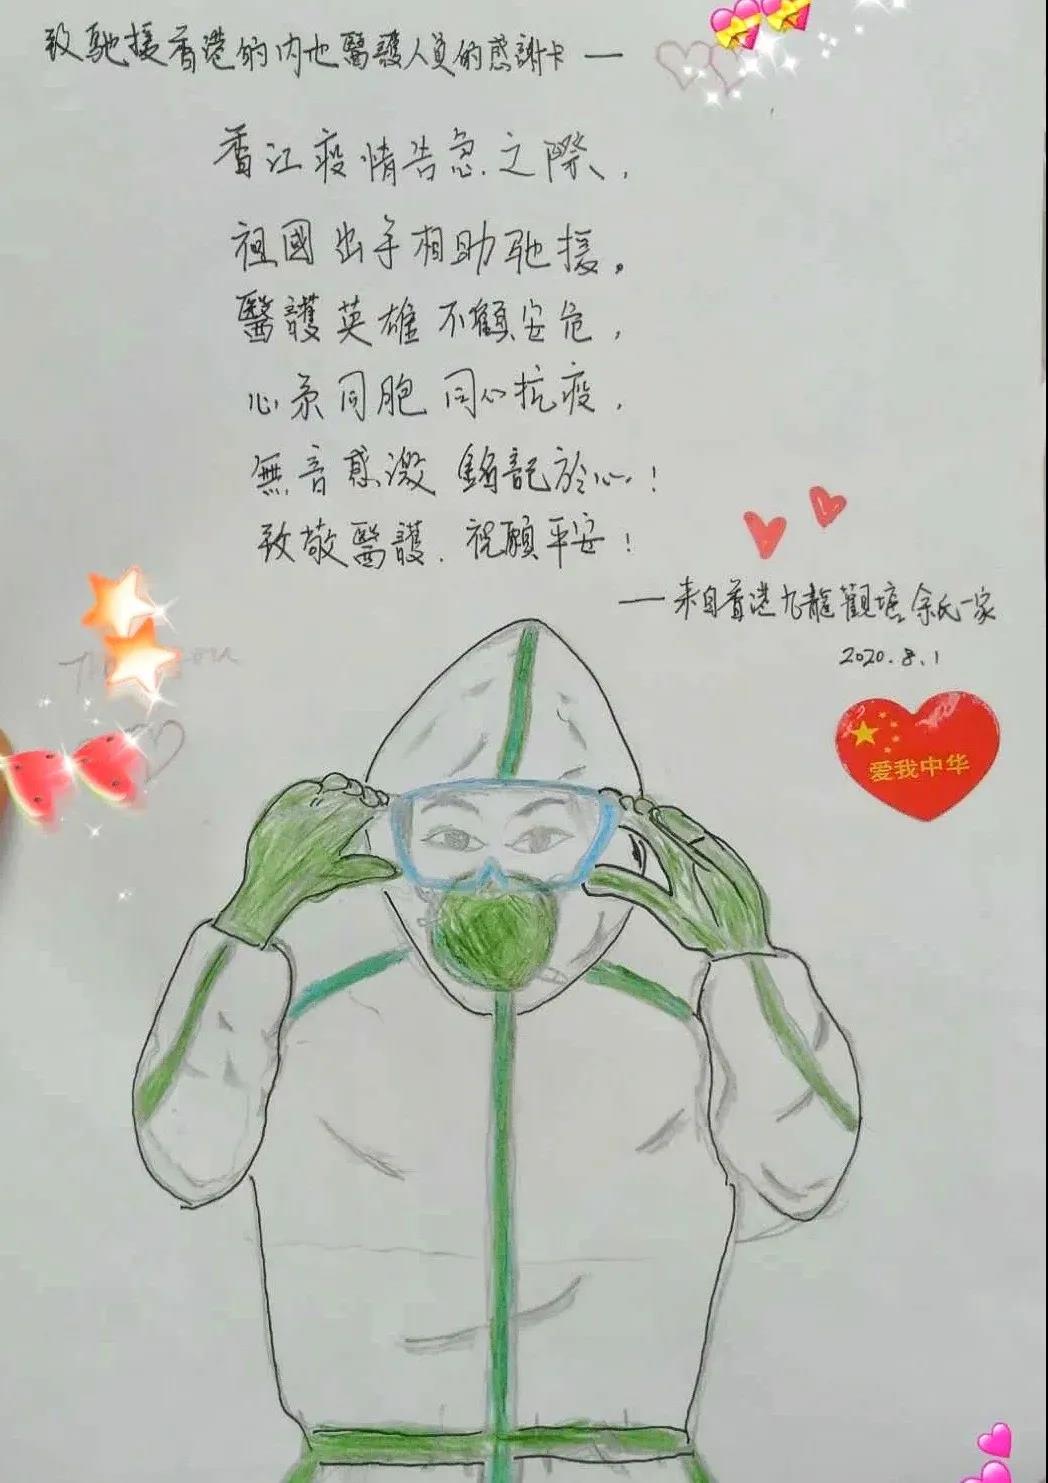 致馳援香港的内地醫護人員的感謝卡 —
香江疫情告急之際,
祖國出手相助馳援。
醫護英雄不顧安危,
心系同胞 同心抗疫,
無音感激 銘記於心!
致敬醫護. 祝願平安!
— 来自香港九龍觀塘余氏一家
2020.8.1
爱我中华